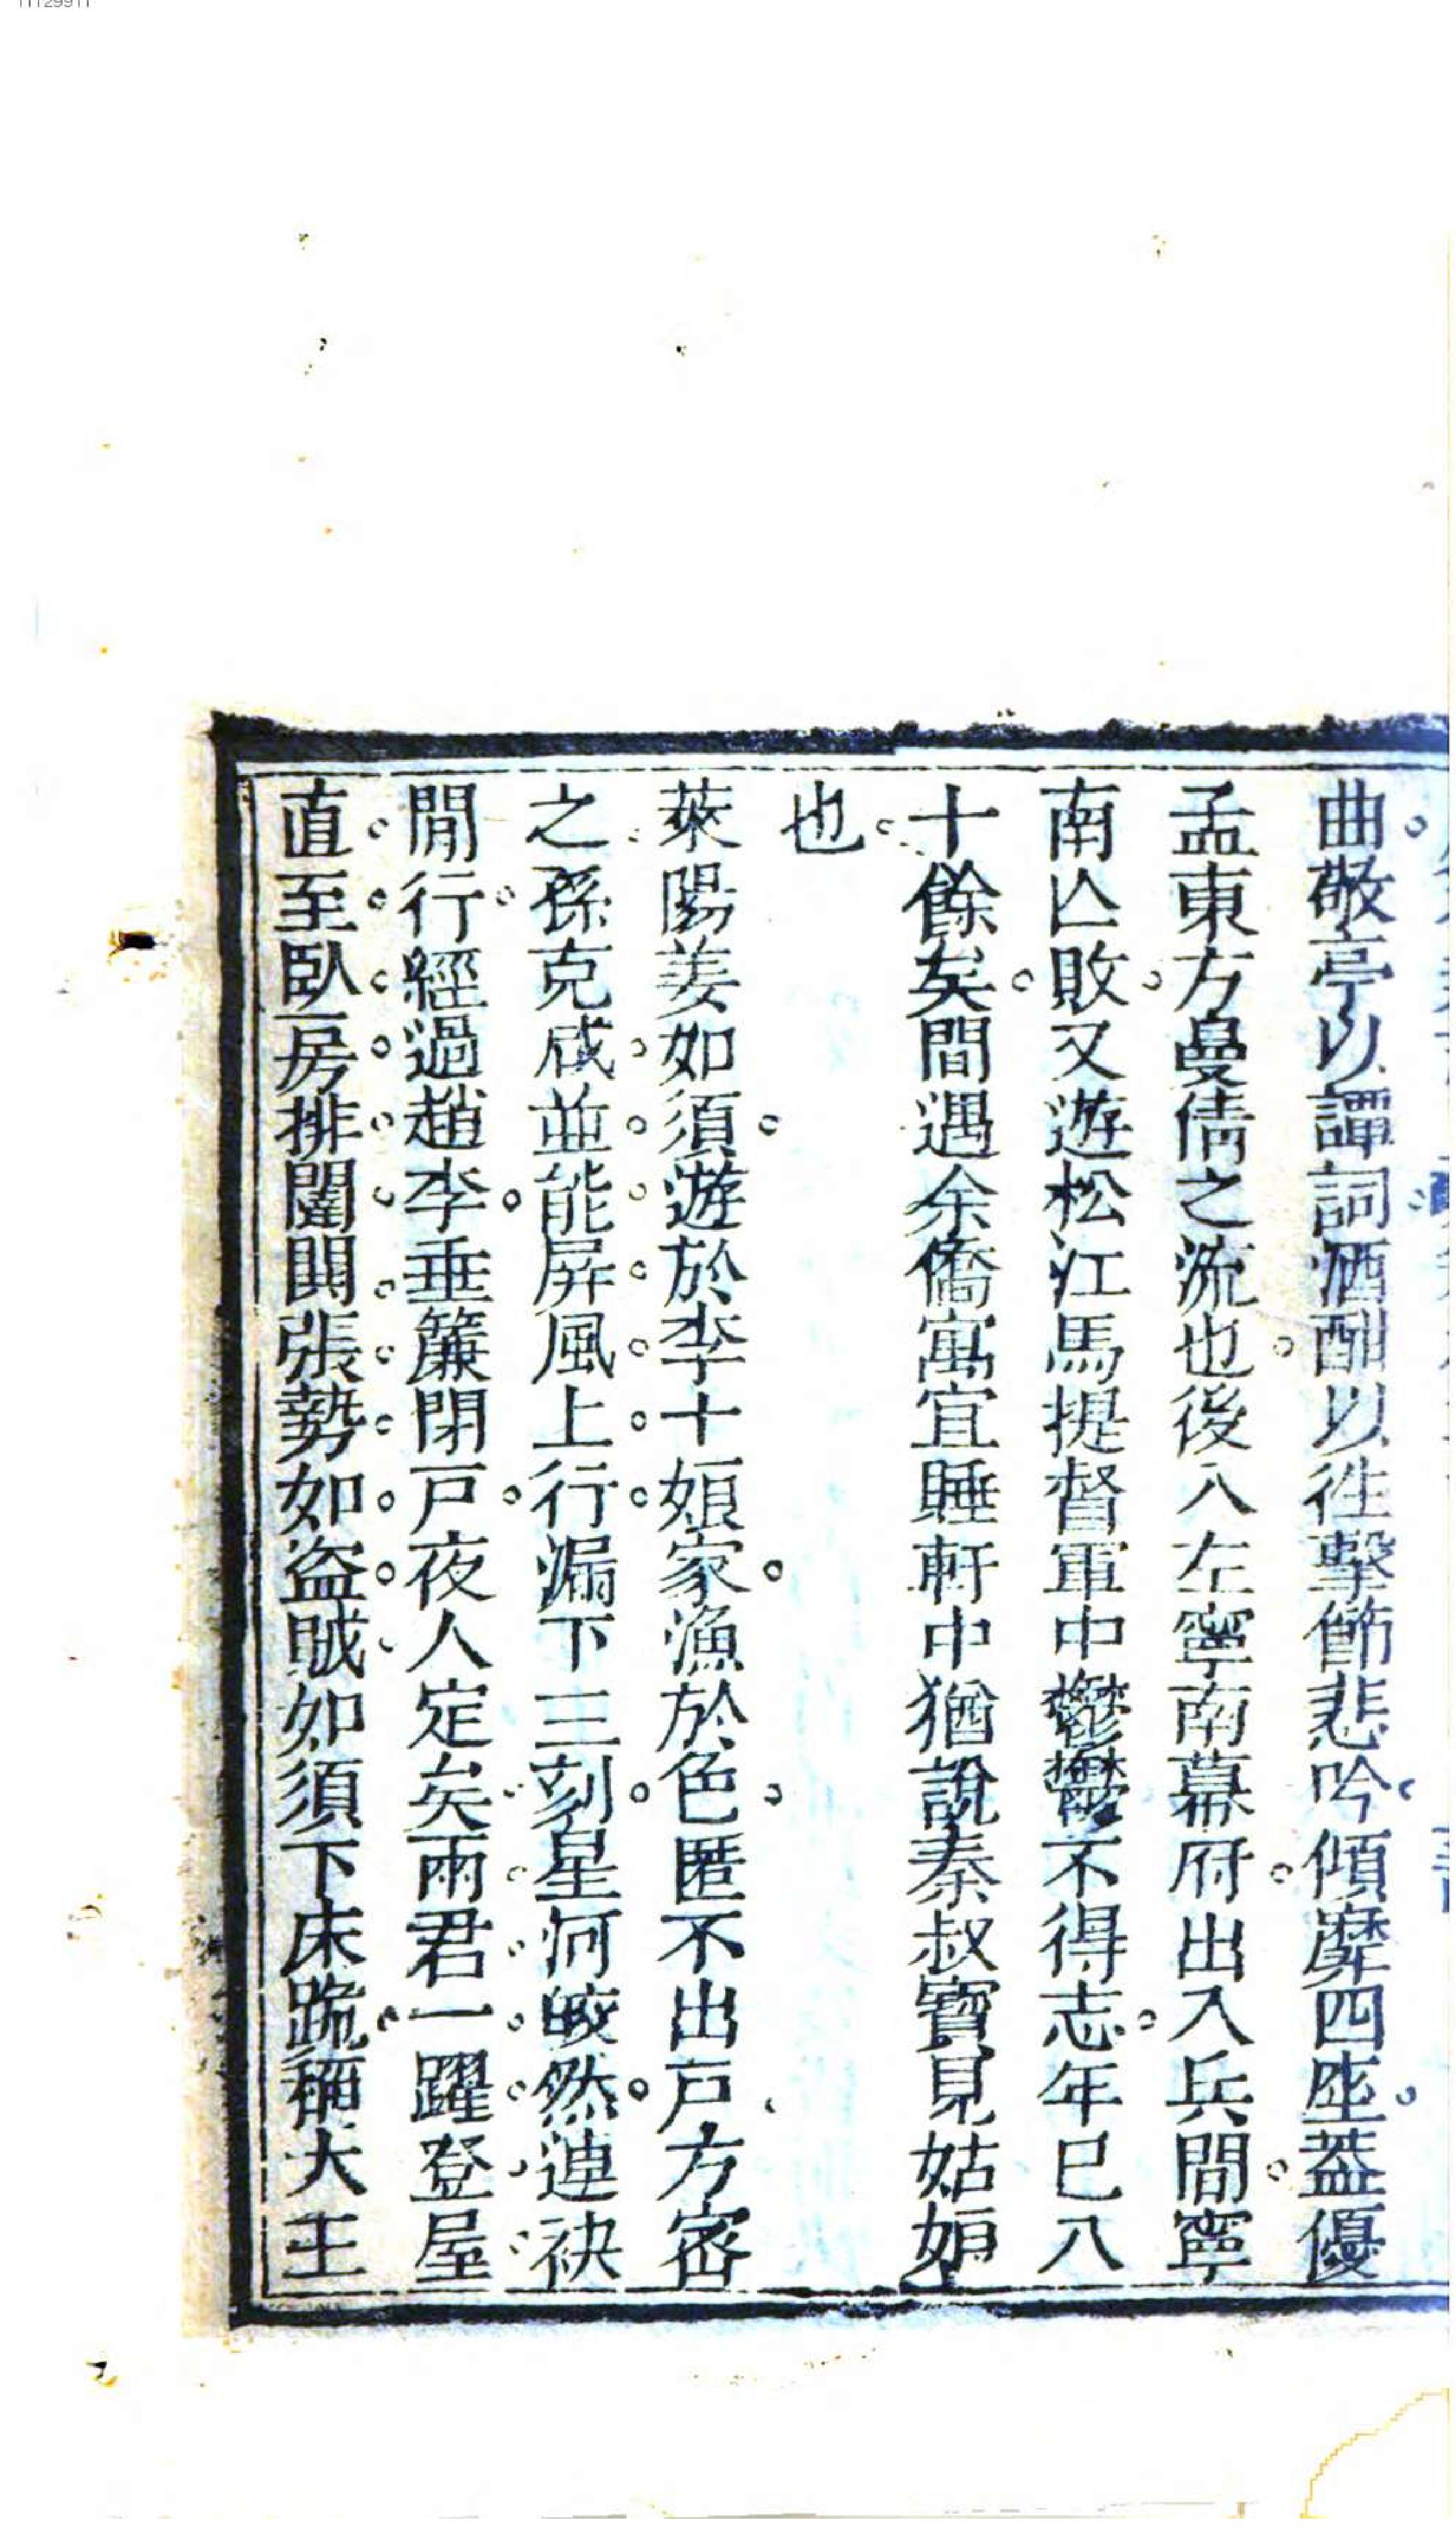 曲敬亭以譚詞酒酣以徃擊節悲吟傾靡四座葢優
孟東方曼倩之流也後入左寧南幕府出入兵間寧
南亾敗又遊松江馬提督軍中鬱鬱不得志年已八
十餘矣間遇余僑寓宜睡軒中猶說秦叔寶見姑娘
也
萊陽姜如須遊於李十娘家漁於色匿不出戸方宻
之孫克咸並能屏風上行漏下三刻星河皎然連袂
閒行經過趙李垂簾閉戸夜人定矣兩君一躍登屋
直至臥房排闥開張勢如盜賊如須下床跪稱大王